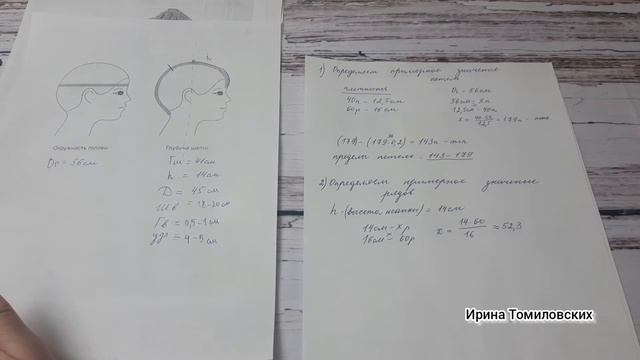 h
Окружность головы
Ог = 56см
Глубина шапки
Гш = 41см
h = 14см
D = 45см
Шв = 18-20см
Гв = 0,5-1см
удл = 4-5см
1) Определяем примерное значение петель
плотность
40п - 12,5см
60р - 16см
Ог = 56см
56см = Xп
12,5см - 40п
(179) - (179·0,2) = 143п - min
пределы петель: 143-179
2) Определяем примерное значение рядов
h-(высота шапки) = 14см
14см - X р
16см - 60р
x = 14·60 / 16 ≈ 52,3
Ирина Томиловских